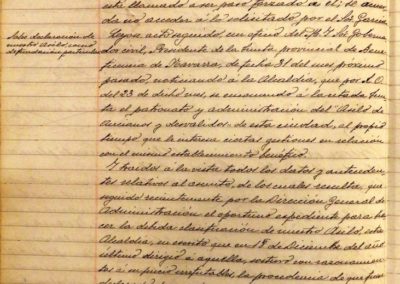 está llamado á ser paso forzado á él; se acuer-
da no acceder á lo solicitado por el Sr. García.
Sobre declaración de
nuestro Asilo, como
de fundación particular
Leyóse acto seguido, un oficio del M. I. Sr. Goberna-
dor civil, Presidente de la Junta provincial de Bene-
ficencia de Navarra, de fecha 31 del mes próximo
pasado, noticiando á la Alcaldía, que por R. O.
del 23 de dicho mes, se encomienda á la citada Jun-
ta el patronato y administración del Asilo de
Ancianos y desvalidos de esta ciudad, al propio
tiempo que le interesa ciertas gestiones en relación
con el mismo establecimiento benéfico.
Traidos á la vista todos los datos y anteceden-
tes relativos al asunto, de los cuales resulta, que
seguido recientemente por la Dirección General de
Administración el oportuno expediente para ha-
cer la debida clasificación de nuestro Asilo, esta
Alcaldía, en escrito que en 1º de Diciembre del año
último dirigió á aquella, sostuvo con razonamien-
tos á su juicio irrefutables, la procedencia de que fuera